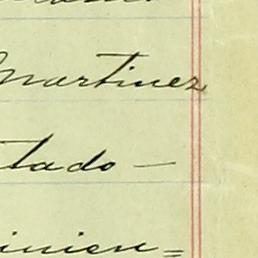 Martinez
tado —
inien=